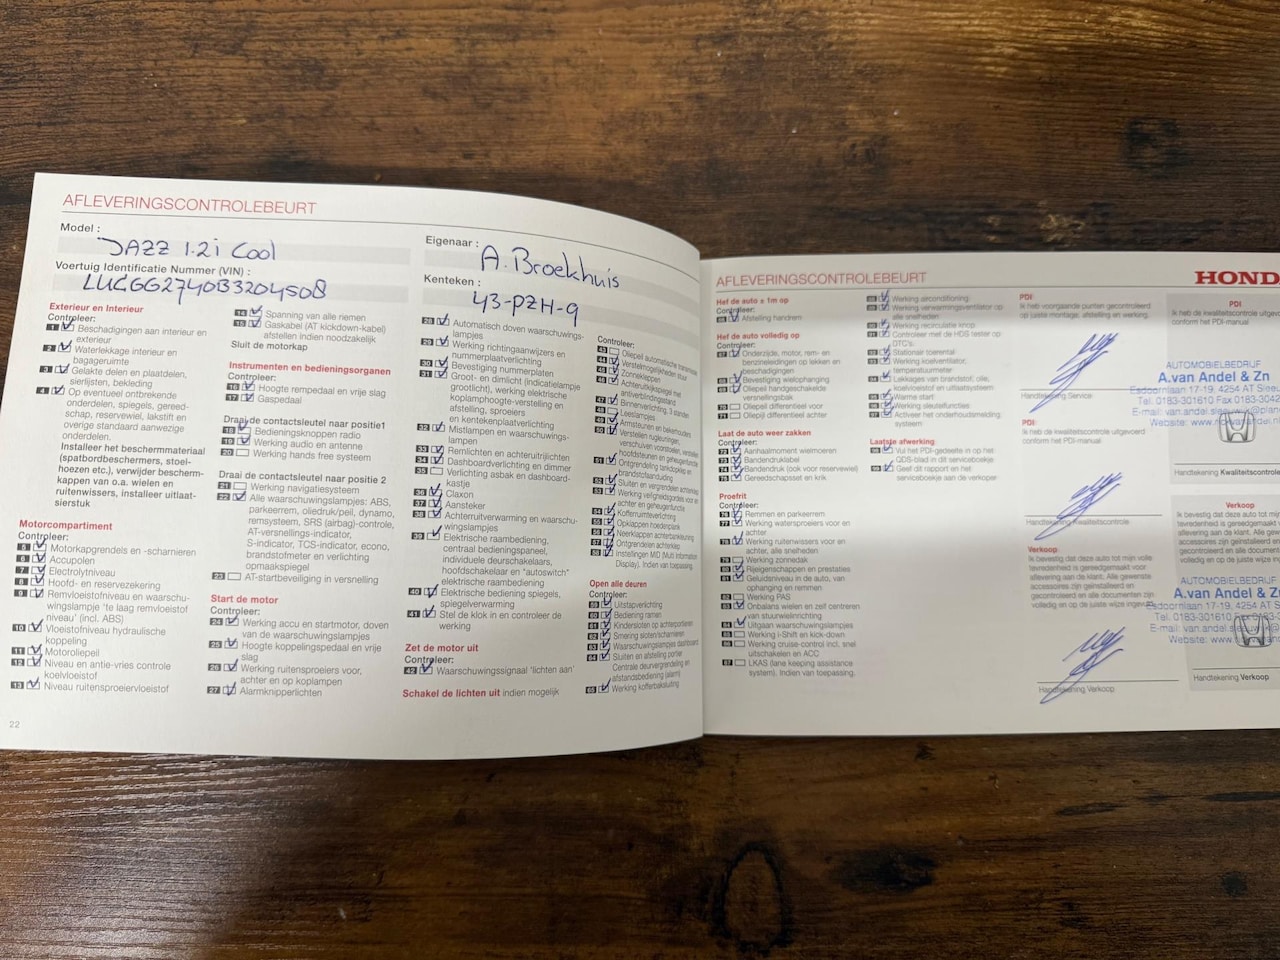 AFLEVERINGSCONTROLEBEURT
Model :
JAZZ 1.2i Cool
Voertuig Identificatie Nummer (VIN) :
LUCGG2740B3204508
Eigenaar :
A. Broekhuis
Kenteken :
43-PZH-9
Exterieur en Interieur
Controleer:
1 Beschadigingen aan interieur en
exterieur
2 Waterlekkage interieur en
bagageruimte
3 Gelakte delen en plaatdelen,
sierlijsten, bekleding
4 Op eventueel ontbrekende
onderdelen, spiegels, gereed-
schap, reservewiel, lakstift en
overige standaard aanwezige
onderdelen.
Installeer het beschermmateriaal
(spatbordbeschermers, stoel-
hoezen etc.), verwijder bescherm-
kappen van o.a. wielen en
ruitenwissers, installeer uitlaat-
sierstuk
Motorcompartiment
5 Motorkapgrendels en -scharnieren
6 Accupolen
7 Electrolytniveau
8 Hoofd- en reservezekering
9 Remvloeistofniveau en waarschu-
wingslampje 'te laag remvloeistof
niveau' (incl. ABS)
10 Vloeistofniveau hydraulische
koppeling
11 Motoroliepeil
12 Niveau en antie-vries controle
koelvloeistof
13 Niveau ruitensproeiervloeistof
22
14 Spanning van alle riemen
15 Gaskabel (AT kickdown-kabel)
afstellen indien noodzakelijk
Sluit de motorkap
Instrumenten en bedieningsorganen
Controleer:
16 Hoogte rempedaal en vrije slag
17 Gaspedaal
Draai de contactsleutel naar positie1
18 Bedieningsknoppen radio
19 Werking audio en antenne
20 Werking hands free systeem
Draai de contactsleutel naar positie 2
21 Werking navigatiesysteem
22 Alle waarschuwingslampjes: ABS,
parkeerrem, oliedruk/peil, dynamo,
remsysteem, SRS (airbag)-controle,
AT-versnellings-indicator,
S-indicator, TCS-indicator, econo,
brandstofmeter en verlichting
opmaakspiegel
23 AT-startbeveiliging in versnelling
Start de motor
Controleer:
24 Werking accu en startmotor, doven
van de waarschuwingslampjes
25 Hoogte koppelingspedaal en vrije
slag
26 Werking ruitensproeiers voor,
achter en op koplampen
27 Alarmknipperlichten
28 Automatisch doven waarschuwings-
lampjes
29 Werking richtingaanwijzers en
nummerplaatverlichting
30 Bevestiging nummerplaten
31 Groot- en dimlicht (indicatielampje
grootlicht), werking elektrische
koplamphoogte-verstelling en
afstelling, sproeiers
en kentekenplaatverlichting
32 Mistlampen en waarschuwings-
lampen
33 Remlichten en achteruitrijlichten
34 Dashboardverlichting en dimmer
35 Verlichting asbak en dashboard-
kastje
36 Claxon
37 Aansteker
38 Achterruitverwarming en waarschu-
wingslampjes
39 Elektrische raambediening,
centraal bedieningspaneel,
individuele deurschakelaars,
hoofdschakelaar en "autoswitch"
elektrische raambediening
40 Elektrische bediening spiegels,
spiegelverwarming
41 Stel de klok in en controleer de
werking
Zet de motor uit
Controleer:
42 Waarschuwingssignaal 'lichten aan'
Schakel de lichten uit indien mogelijk
Controleer:
43 Oliepeil automatische transmissie
44 Verstelmogelijkheden stuur
45 Zonnekleppen
46 Achteruitkijkspiegel met
antiverblindingsstand
47 Binnenverlichting, 3 standen
48 Leeslampjes
49 Armsteunen en bekerhouders
51 Ontgrendeling tankdopklep en
brandstofaanduiding
52 Sluiten en vergrendelen achterklep
53 Werking veiligheidsgordels voor en
achter en geheugenfunctie
54 Kofferruimteverlichting
55 Opklappen hoedenplank
56 Neerklappen achterbankleuning
57 Ontgrendelen achterklep
58 Instellingen MID (Multi Information
Display). Indien van toepassing.
Open alle deuren
Controleer:
59 Uitstapverlichting
60 Bediening ramen
61 Kindersloten op achterportieren
62 Smering sloten/scharnieren
63 Waarschuwingslampjes dashboard
64 Sluiten en afstelling portier
Centrale deurvergrendeling en
afstandsbediening (alarm)
65 Werking kofferbaksluiting
AFLEVERINGSCONTROLEBEURT
HOND
Hef de auto ± 1m op
Controleer:
66 Afstelling handrem
Hef de auto volledig op
Controleer:
67 Onderzijde, motor, rem- en
benzineleidingen op lekken en
beschadigingen
68 Bevestiging wielophanging
69 Oliepeil handgeschakelde
versnellingsbak
70 Oliepeil differentieel voor
71 Oliepeil differentieel achter
Laat de auto weer zakken
Controleer:
72 Aanhaalmoment wielmoeren
73 Bandendruklabel
74 Bandendruk (ook voor reservewiel)
75 Gereedschapsset en krik
Proefrit
Controleer:
76 Remmen en parkeerrem
77 Werking watersproeiers voor en
achter
78 Werking ruitenwissers voor en
achter, alle snelheden
79 Werking zonnedak
80 Rijeigenschappen en prestaties
81 Geluidsniveau in de auto, van
ophanging en remmen
82 Werking PAS
83 Onbalans wielen en zelf centreren
van stuurwielinrichting
84 Uitgaan waarschuwingslampjes
85 Werking i-Shift en kick-down
86 Werking cruise-control incl. snel
uitschakelen en ACC
87 LKAS (lane keeping assistance
system). Indien van toepassing.
88 Werking airconditioning
89 Werking verwarmingsventilator op
alle snelheden
90 Werking recirculatie knop
91 Controleer met de HDS tester op
DTC's
92 Stationair toerental
93 Werking koelventilator,
temperatuurmeter
94 Lekkages van brandstof, olie,
koelvloeistof en uitlaatsysteem
95 Warme start
96 Werking sleutelfuncties
97 Activeer het onderhoudsmeldings-
systeem
Laatste afwerking
98 Vul het PDI-gedeelte in op het
QDS-blad in dit serviceboekje
99 Geef dit rapport en het
serviceboekje aan de verkoper
PDI
Ik heb voorgaande punten gecontroleerd
op juiste montage, afstelling en werking.
Handtekening Service
PDI
Ik heb de kwaliteitscontrole uitgevoerd
conform het PDI-manual
Handtekening Kwaliteitscontrole
Verkoop
Ik bevestig dat deze auto tot mijn volle
tevredenheid is gereedgemaakt voor
aflevering aan de klant. Alle gewenste
accessoires zijn geïnstalleerd en
gecontroleerd en alle documenten zijn
volledig en op de juiste wijze ingevuld
Handtekening Verkoop
PDI
Ik heb de kwaliteitscontrole uitgevoerd
conform het PDI-manual
AUTOMOBIELBEDRIJF
A.van Andel & Zn
Esdoornlaan 17-19, 4254 AT Sleeu
Tel. 0183-301610 Fax 0183-3042
E-mail: van.andel.sleeuwijk@plan
Handtekening Kwaliteitscontrole
Verkoop
Ik bevestig dat deze auto tot mijn
tevredenheid is gereedgemaakt
aflevering aan de klant. Alle gew
accessoires zijn geïnstalleerd en
gecontroleerd en alle documenten
volledig en op de juiste wijze inge
AUTOMOBIELBEDRIJF
A.van Andel & Zn
Esdoornlaan 17-19, 4254 AT S
Tel. 0183-301610 Fax 0183
Handtekening Verkoop